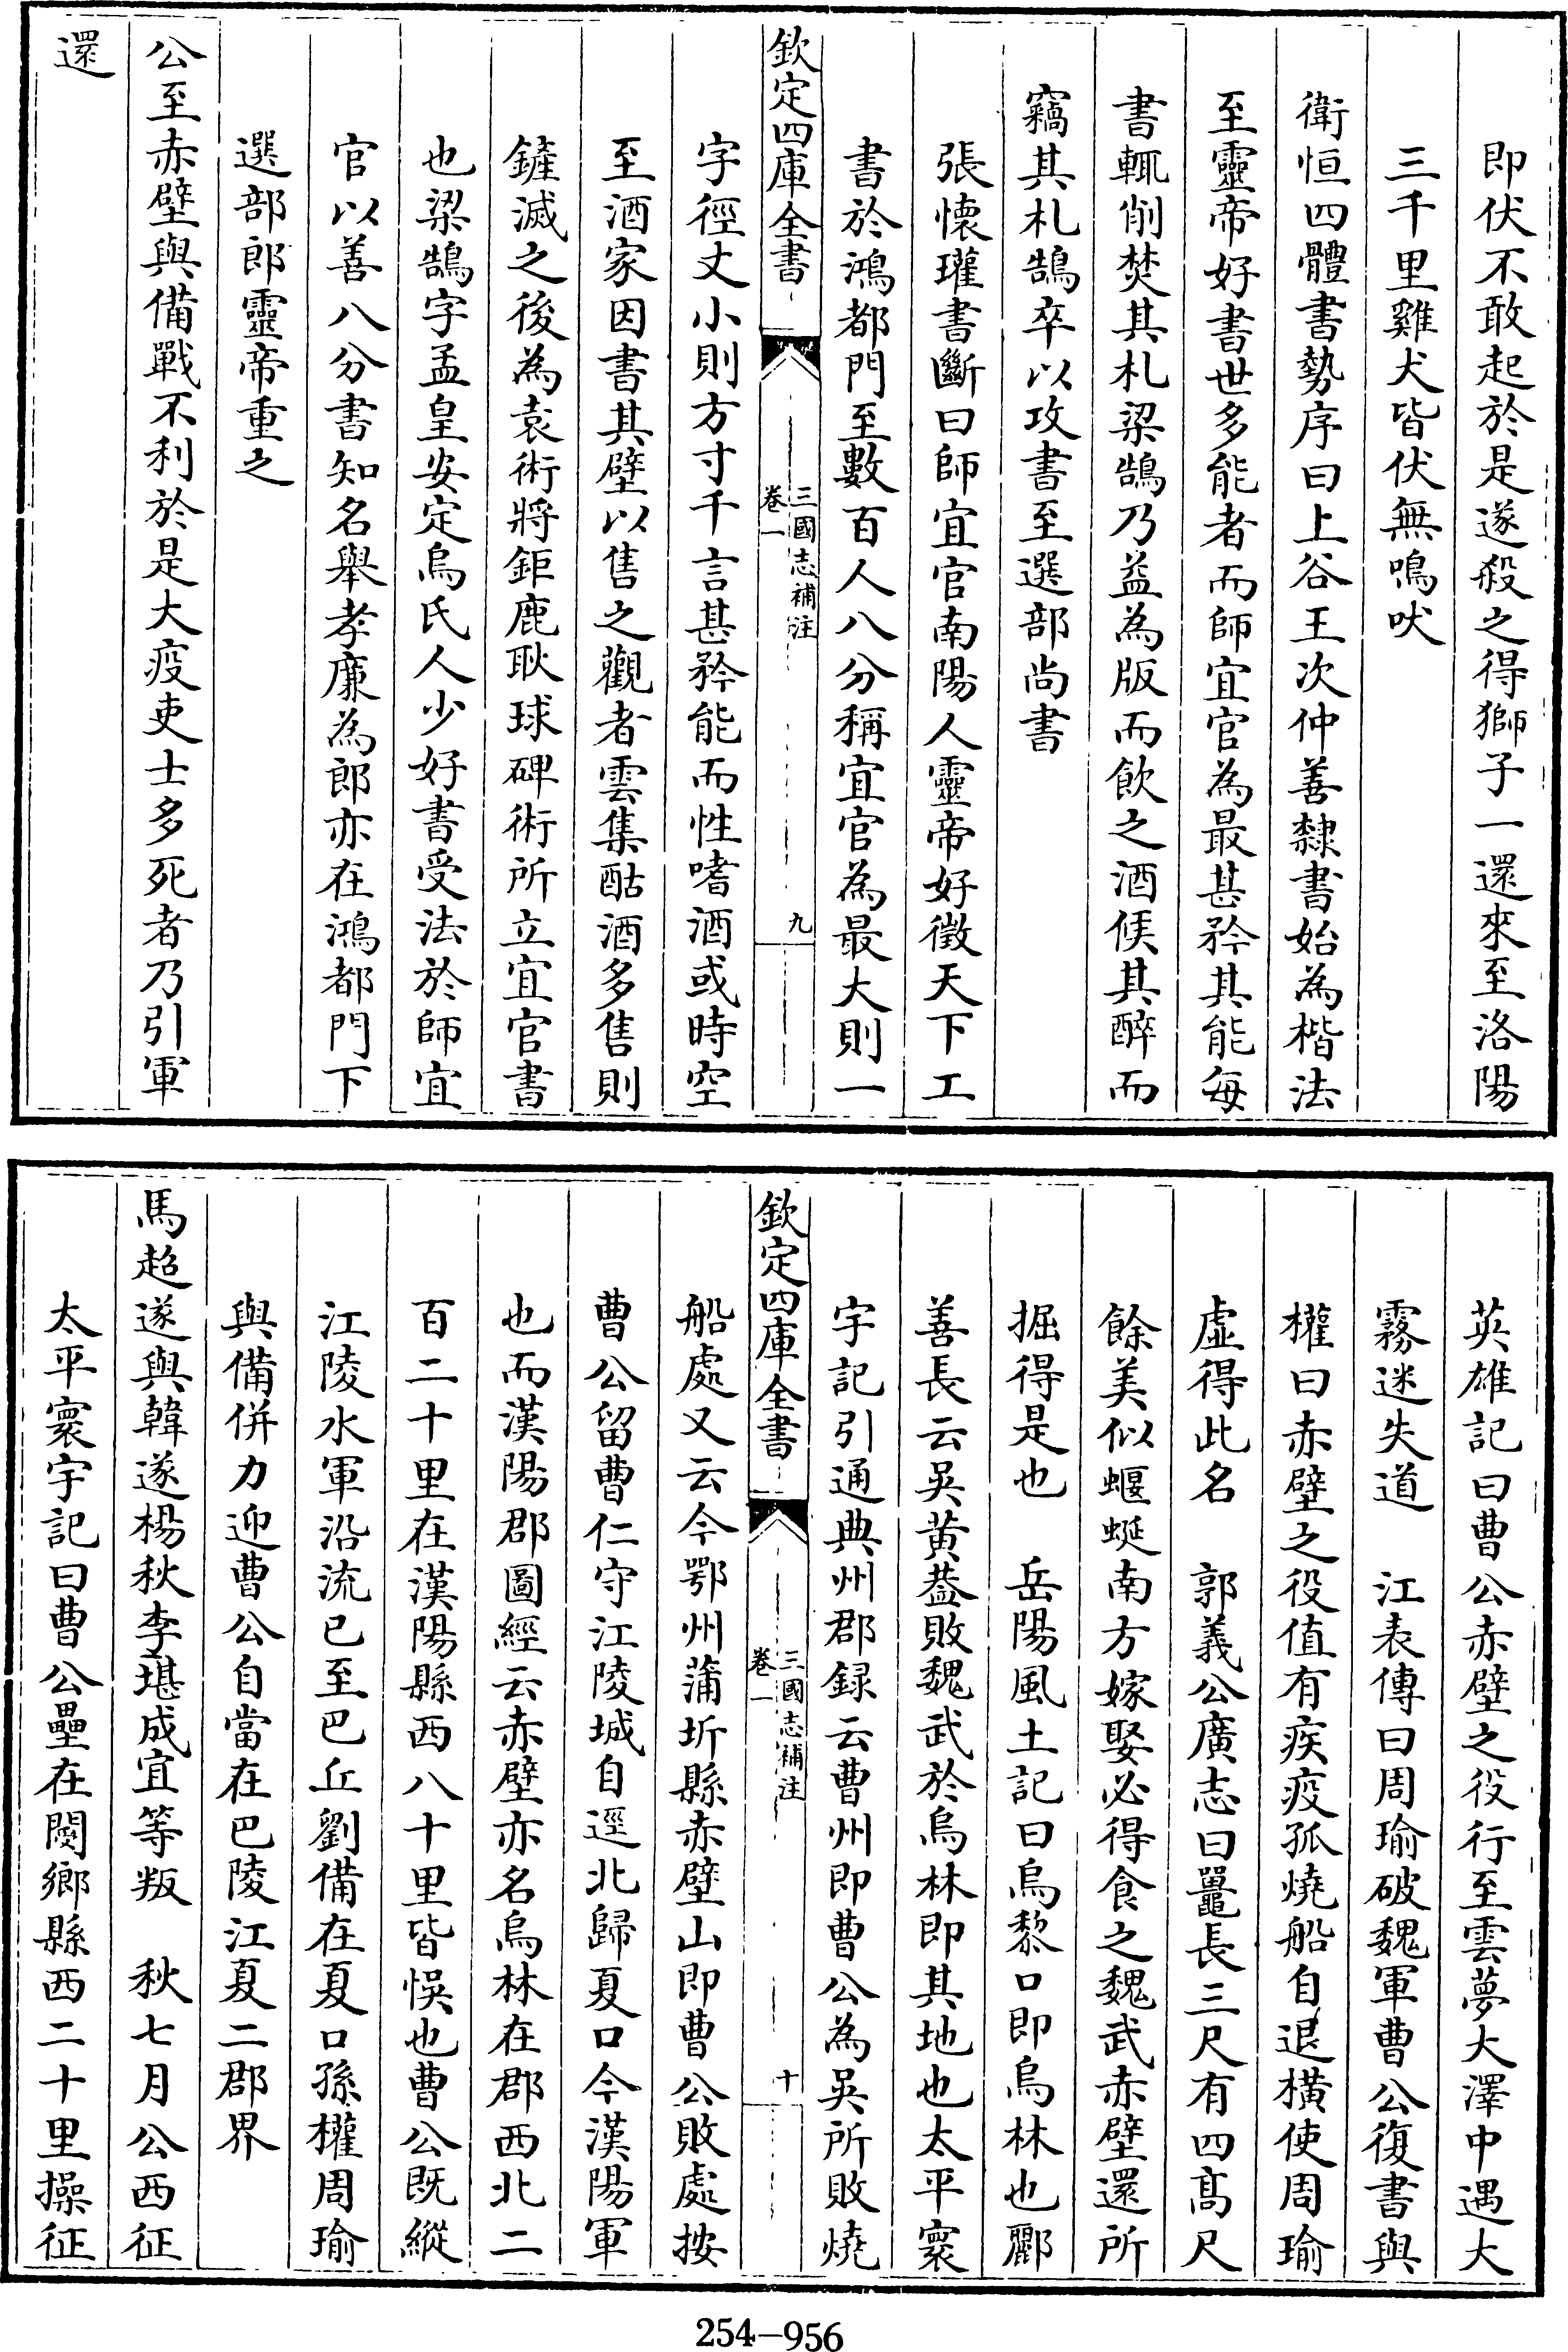 即伏不敢起於是遂殺之得獅子一還來至洛陽
三千里雞犬皆伏無鳴吠
衛恒四體書勢序曰上谷王次仲善隸書始為楷法
至靈帝好書世多能者而師宜官為最甚矜其能每
書輒削焚其札梁鵠乃益為版而飲之酒候其醉而
竊其札鵠卒以攻書至選部尚書
張懷瓘書斷曰師宜官南陽人靈帝好徵天下工
書於鴻都門至數百人八分稱宜官為最大則一
欽定四庫全書
三國志補注
卷一
九
字徑丈小則方寸千言甚矜能而性嗜酒或時空
至酒家因書其壁以售之觀者雲集酤酒多售則
鏟滅之後為袁術將鉅鹿耿球碑術所立宜官書
也梁鵠字孟皇安定烏氏人少好書受法於師宜
官以善八分書知名舉孝廉為郎亦在鴻都門下
選部郎靈帝重之
公至赤壁與備戰不利於是大疫吏士多死者乃引軍
還
英雄記曰曹公赤壁之役行至雲夢大澤中遇大
霧迷失道　江表傳曰周瑜破魏軍曹公復書與
權曰赤壁之役值有疾疫孤燒船自退橫使周瑜
虛得此名　郭義公廣志曰鼉長三尺有四高尺
餘美似蝘蜒南方嫁娶必得食之魏武赤壁還所
掘得是也　岳陽風土記曰烏黎口即烏林也酈
善長云吳黃葢敗魏武於烏林即其地也太平寰
宇記引通典州郡録云曹州即曹公為吳所敗燒
欽定四庫全書
三國志補注
卷一
十
船處又云今鄂州蒲圻縣赤壁山即曹公敗處按
曹公留曹仁守江陵城自逕北歸夏口今漢陽軍
也而漢陽郡圖經云赤壁亦名烏林在郡西北二
百二十里在漢陽縣西八十里皆悞也曹公既縱
江陵水軍沿流已至巴丘劉備在夏口孫權周瑜
與備併力迎曹公自當在巴陵江夏二郡界
馬超遂與韓遂楊秋李堪成宜等叛　秋七月公西征
太平寰宇記曰曹公壘在閿鄉縣西二十里操征
254-956